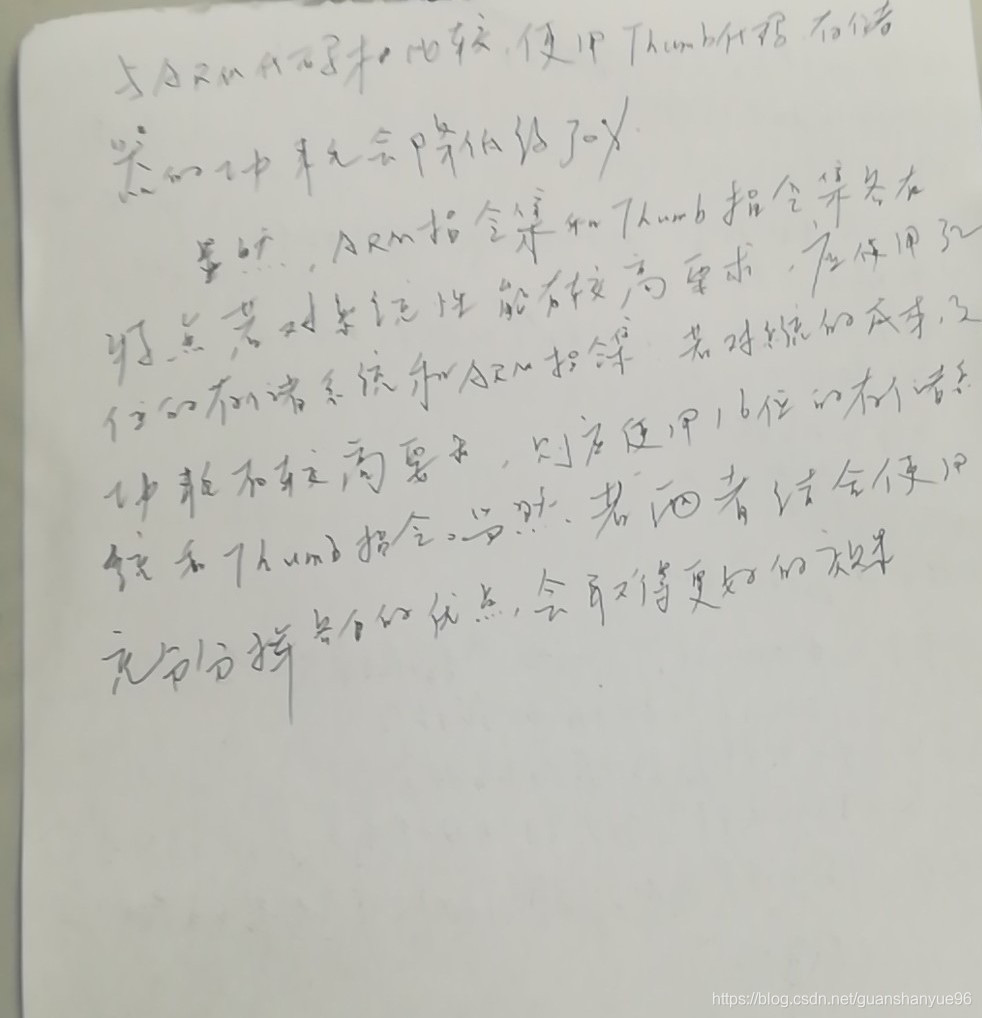 与ARM代码相比较,使用Thumb代码,存储
器的功耗会降低约30%
显然,ARM指令集和Thumb指令集各有
特点若对系统性能有较高要求,应使用32
位的存储系统和ARM指令集 若对系统的成本,及
功耗有较高要求,则应使用16位的存储系
统和Thumb指令。当然、若两者结合使用
充分分挥各自的优点,会取得更好的效果
https://blog.csdn.net/guanshanyue96